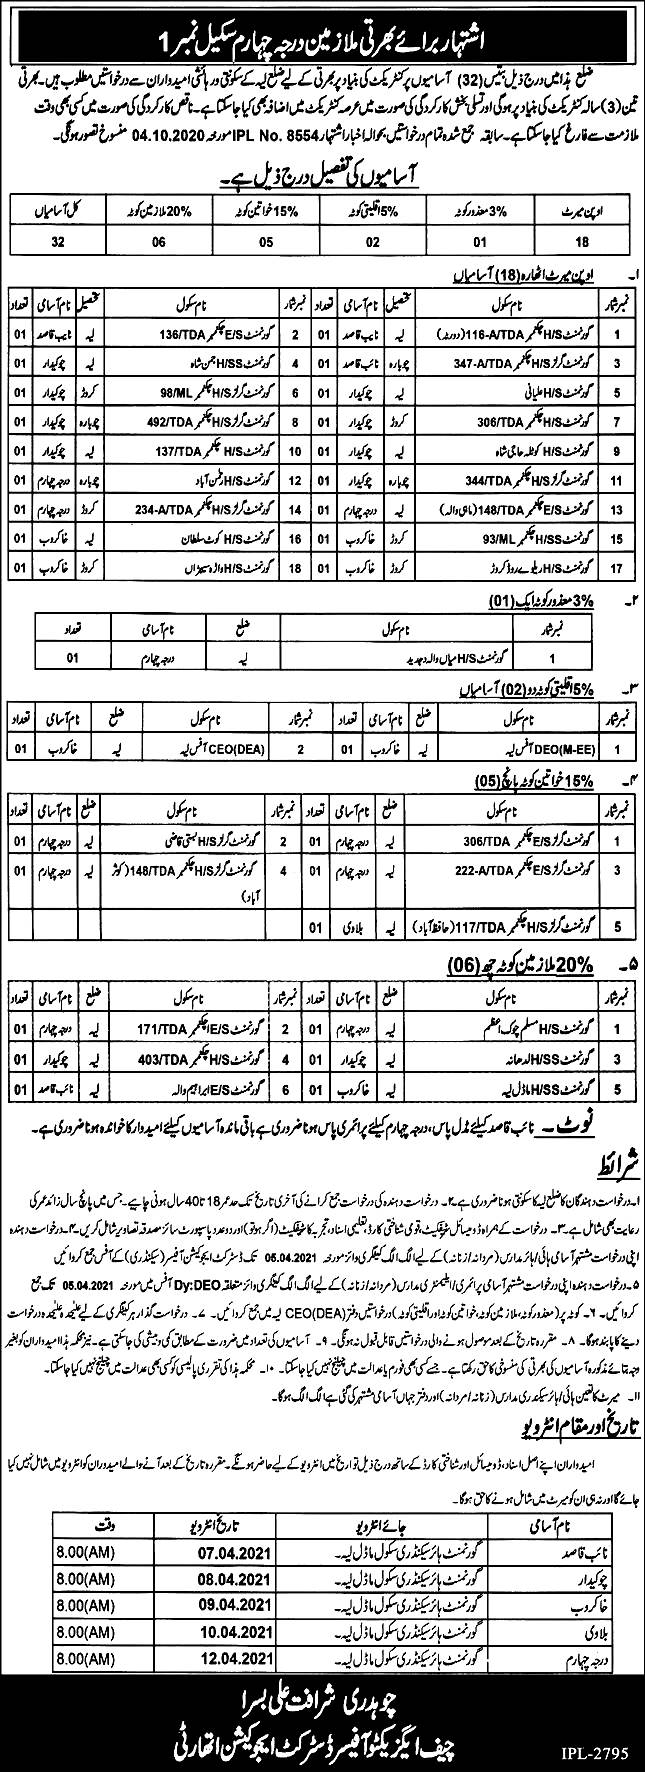 اشتہار برائے بھرتی ملازمین درجہ چہارم سکیل نمبر 1
ضلع ہذا میں درج ذیل بتیس (32) آسامیوں پر کنٹریکٹ کی بنیاد پر بھرتی کے لیے ضلع لیہ کے سکونتی و رہائشی امیدواران سے درخواستیں مطلوب ہیں۔ بھرتی
تین (3) سالہ کنٹریکٹ کی بنیاد پر ہوگی اور تسلی بخش کارکردگی کی صورت میں عرصہ کنٹریکٹ میں اضافہ بھی کیا جاسکتا ہے۔ ناقص کارکردگی کی صورت میں کسی بھی وقت
ملازمت سے فارغ کیا جاسکتا ہے۔ سابقہ جمع شدہ تمام درخواستیں بحوالہ اخبار اشتہار IPL No. 8554 مورخہ 04.10.2020 منسوخ تصور ہوگی۔
آسامیوں کی تفصیل درج ذیل ہے۔
اوپن میرٹ 3% معذور کوٹہ 5% اقلیتی کوٹہ 15% خواتین کوٹہ 20% ملازمین کوٹہ کل آسامیاں
18 01 02 05 06 32
۱۔ اوپن میرٹ اٹھارہ (18) آسامیاں
نمبر شمار نام سکول تحصیل نام آسامی تعداد نمبر شمار نام سکول تحصیل نام آسامی تعداد
1 گورنمنٹ H/S چکنمبر 116-A/TDA (دورٹہ) لیہ نایب قاصد 01 2 گورنمنٹ E/S چکنمبر 136/TDA لیہ نایب قاصد 01
3 گورنمنٹ گرلز H/S چکنمبر 347-A/TDA چوبارہ نائب قاصد 01 4 گورنمنٹ H/SS جمن شاہ لیہ چوکیدار 01
5 گورنمنٹ H/S علیانی لیہ چوکیدار 01 6 گورنمنٹ گرلز H/S چکنمبر 98/ML کروڑ چوکیدار 01
7 گورنمنٹ H/S چکنمبر 306/TDA کروڑ چوکیدار 01 8 گورنمنٹ گرلز H/S چکنمبر 492/TDA چوبارہ چوکیدار 01
9 گورنمنٹ H/S کوٹلہ حاجی شاہ لیہ چوکیدار 01 10 گورنمنٹ گرلز H/S چکنمبر 137/TDA لیہ چوکیدار 01
11 گورنمنٹ گرلز H/S چکنمبر 344/TDA چوبارہ چوکیدار 01 12 گورنمنٹ گرلز H/S رفیق آباد چوبارہ درجہ چہارم 01
13 گورنمنٹ E/S چکنمبر 148/TDA (ماہی والہ) لیہ درجہ چہارم 01 14 گورنمنٹ گرلز H/S چکنمبر 234-A/TDA کروڑ درجہ چہارم 01
15 گورنمنٹ H/SS چکنمبر 93/ML کروڑ خاکروب 01 16 گورنمنٹ H/S کوٹ سلطان لیہ خاکروب 01
17 گورنمنٹ H/S ریلوے روڈ کروڑ کروڑ خاکروب 01 18 گورنمنٹ H/S واڑہ سیہڑاں کروڑ خاکروب 01
۲۔ 3% معذور کوٹہ ایک (01)
نمبر شمار نام سکول ضلع نام آسامی تعداد
1 گورنمنٹ H/S میاں والہ دجدید لیہ درجہ چہارم 01
۳۔ 5% اقلیتی کوٹہ دو (02) آسامیاں
نمبر شمار نام سکول ضلع نام آسامی تعداد نمبر شمار نام سکول ضلع نام آسامی تعداد
1 DEO(M-EE) آفس لیہ لیہ خاکروب 01 2 CEO(DEA) آفس لیہ لیہ خاکروب 01
۴۔ 15% خواتین کوٹہ پانچ (05)
نمبر شمار نام سکول ضلع نام آسامی تعداد نمبر شمار نام سکول ضلع نام آسامی تعداد
1 گورنمنٹ گرلز E/S چکنمبر 306/TDA لیہ درجہ چہارم 01 2 گورنمنٹ گرلز H/S بستی قاضی لیہ درجہ چہارم 01
3 گورنمنٹ گرلز E/S چکنمبر 222-A/TDA لیہ درجہ چہارم 01 4 گورنمنٹ گرلز H/S چکنمبر 148/TDA (کوثر آباد) لیہ درجہ چہارم 01
5 گورنمنٹ گرلز H/S چکنمبر 117/TDA (حافظ آباد) لیہ بلاوی 01
۵۔ 20% ملازمین کوٹہ چھ (06)
نمبر شمار نام سکول ضلع نام آسامی تعداد نمبر شمار نام سکول ضلع نام آسامی تعداد
1 گورنمنٹ H/S مسلم چوک اعظم لیہ درجہ چہارم 01 2 گورنمنٹ E/S چکنمبر 171/TDA لیہ درجہ چہارم 01
3 گورنمنٹ H/SS لدھانہ لیہ چوکیدار 01 4 گورنمنٹ H/S چکنمبر 403/TDA لیہ چوکیدار 01
5 گورنمنٹ H/SS ماڈل لیہ لیہ خاکروب 01 6 گورنمنٹ E/S ابراہیم والہ لیہ نائب قاصد 01
نوٹ۔ نائب قاصد کیلئے مڈل پاس، درجہ چہارم کیلئے پرائمری پاس ہونا ضروری ہے باقی ماندہ آسامیوں کیلئے امیدوار کا خواندہ ہونا ضروری ہے۔
شرائط
۱۔ درخواست دہندگان کا ضلع لیہ کا سکونتی ہونا ضروری ہے۔ ۲۔ درخواست دہندہ کی درخواست جمع کرانے کی آخری تاریخ تک حد عمر 18 تا 40 سال ہونی چاہیے۔ جس میں پانچ سال زائد عمر کی
رعایت بھی شامل ہے۔ ۳۔ درخواست کے ہمراہ ڈومیسائل سرٹیفکیٹ، قومی شناختی کارڈ، تعلیمی اسناد، تجربہ کا سرٹیفکیٹ (اگر ہو تو) اور دو عدد پاسپورٹ سائز مصدقہ تصاویر شامل کریں۔ ۴۔ درخواست دہندہ
اپنی درخواست مشتہر آسامی ہائی/ہائر مدارس (مردانہ/زنانہ) کے لیے الگ الگ کیٹگری وائز مورخہ 05.04.2021 تک ڈسٹرکٹ ایجوکیشن آفیسر (سیکنڈری) کے آفس جمع کروائیں
۵۔ درخواست دہندہ اپنی درخواست مشتہر آسامی پرائمری/ایلیمنٹری مدارس (مردانہ/زنانہ) کے لیے الگ الگ کیٹگری وائز متعلقہ Dy:DEO آفس میں مورخہ 05.04.2021 تک جمع
کروائیں۔ ۶۔ کوٹہ پر (معذور کوٹہ، ملازمین کوٹہ، خواتین کوٹہ اور اقلیتی کوٹہ) درخواستیں دفتر CEO(DEA) لیہ میں جمع کروائیں۔ ۷۔ درخواست گذار ہر کیٹگری کے لیے علیحدہ علیحدہ درخواست
دینے کا پابند ہوگا۔ ۸۔ مقررہ تاریخ کے بعد موصول ہونے والی درخواستیں قابل قبول نہ ہوگی۔ ۹۔ آسامیوں کی تعداد میں ضرورت کے مطابق کمی و بیشی کی جاسکتی ہے۔ نیز محکمہ ہذا امیدواران کو بغیر
وجہ بتائے مذکورہ آسامیوں کی بھرتی کی منسوخی کا حق رکھتا ہے۔ جسے کسی بھی فورم یا عدالت میں چیلنج نہیں کیا جاسکتا۔ ۱۰۔ محکمہ ہذا کی تقرری پالیسی کو کسی بھی عدالت میں چیلنج نہیں کیا جاسکتا۔
۱۱۔ میرٹ کا تعین ہائی/ہائر سیکنڈری مدارس (زنانہ/مردانہ) اور دفتر جہاں آسامی مشتہر کی گئی ہے الگ الگ ہوگا۔
تاریخ اور مقام انٹرویو
امیدواران اپنے اصل اسناد، ڈومیسائل اور شناختی کارڈ کے ساتھ درج ذیل تواریخ میں انٹرویو کے لیے حاضر ہونگے۔ مقررہ تاریخ کے بعد آنے والے امیدواران کو انٹرویو میں شامل نہیں کیا
جائے گا اور نہ ہی ان کو میرٹ میں شامل ہونے کا حق ہوگا۔
نام آسامی جائے انٹرویو تاریخ انٹرویو وقت
نائب قاصد گورنمنٹ ہائر سیکنڈری سکول ماڈل لیہ۔ 07.04.2021 8.00(AM)
چوکیدار گورنمنٹ ہائر سیکنڈری سکول ماڈل لیہ۔ 08.04.2021 8.00(AM)
خاکروب گورنمنٹ ہائر سیکنڈری سکول ماڈل لیہ۔ 09.04.2021 8.00(AM)
بلاوی گورنمنٹ ہائر سیکنڈری سکول ماڈل لیہ۔ 10.04.2021 8.00(AM)
درجہ چہارم گورنمنٹ ہائر سیکنڈری سکول ماڈل لیہ۔ 12.04.2021 8.00(AM)
چوہدری شرافت علی بسرا
چیف ایگزیکٹو آفیسر ڈسٹرکٹ ایجوکیشن اتھارٹی
IPL-2795